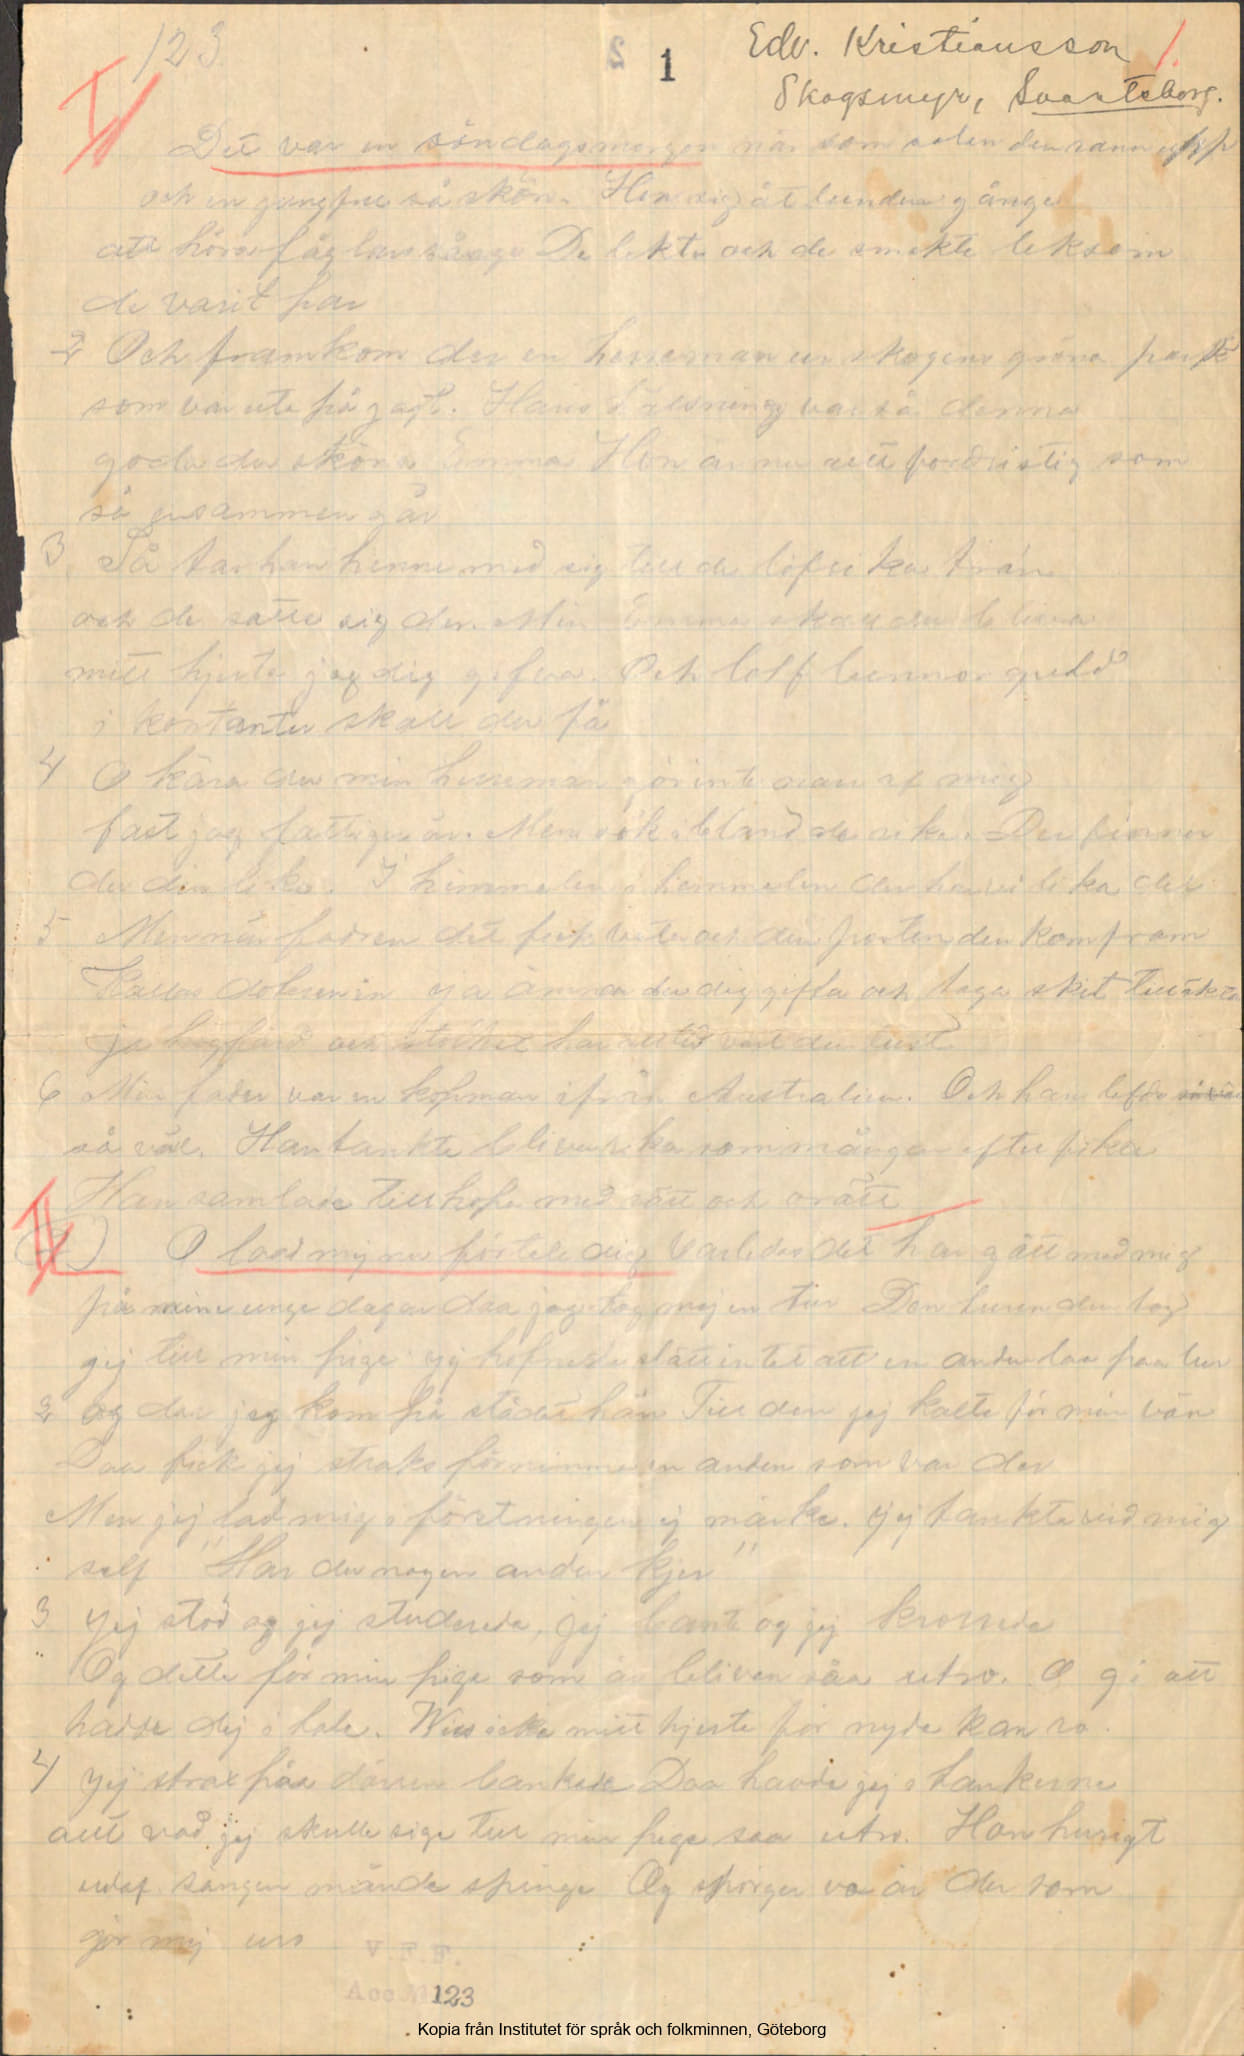 123
S 1
Edv. Kristiansson 1.
Skogsmyr, Svarteborg.
I
Det var en söndagsmorgon när som solen den rann upp
och en jungfru så skön. Hon sig åt lunden gånga
att höra foglars sånge De lekte och de smekte liksom
de varit par
2 Och framkom der en herreman ur skogens gröna park
som var ute på jagt. Hans helsning var så denna
goda du sköna Emma Hon är nu rätt som
så går
3 Så tar han henne med sig till de löfrika trän
och de satte sig der. Min Emma skall du blifva
mitt hjerta jag dig gifva. Och tolf tunnor guld
i kontanter skall du få
4 O kära du min herreman gör inte narr af mig
fast jag fattiger är. Men sök ibland de rika. Der finner
du din like. I himmelen i himmelen der har vi lika der
5 Men när fadren det fick veta och den porten den kom fram
Kallas in ja ämnar du dig gifta och taga skit till äkta
ja högfärd och har alltid varit din lust
6 Min fader var en köpman ifrån Australien. Och han lefde
så väl. Han tänkte bliva rika som mången efter fika
Han samlade tillhopa med rätt och orätt
II
O lad mij nu förtele dig Varledes det har gått med mig
på mine unge dagar daa jag tog mej en tur Den turen den tog
jej till min pige jej slätt intet att en anden laa paa lur
2 og der jeg kom på städet hän Till den jej kalte för min vän
Daa fick jej straks förnimme en anden som var der
Men jej lod mig i ej märke. jej tankte vid mig
self "Har du nogen anden kjer"
3 Jej stod og jej studerede, jej bante og jej
Og dette för min pige som är bliven såa utro. O gi att
hadde dej i hale. Wies icke mitt hjerte för nyde kan ro.
4 Jej strax påa dörren bankede Daa havde jej i tankerne
att vad jej skulle sige till min pige saa utro. Hon hurigt
udaf sängen månde springe Og spörger va är der som
gör mej uro
V.F.F.
Acc. № 123
Kopia från Institutet för språk och folkminnen, Göteborg